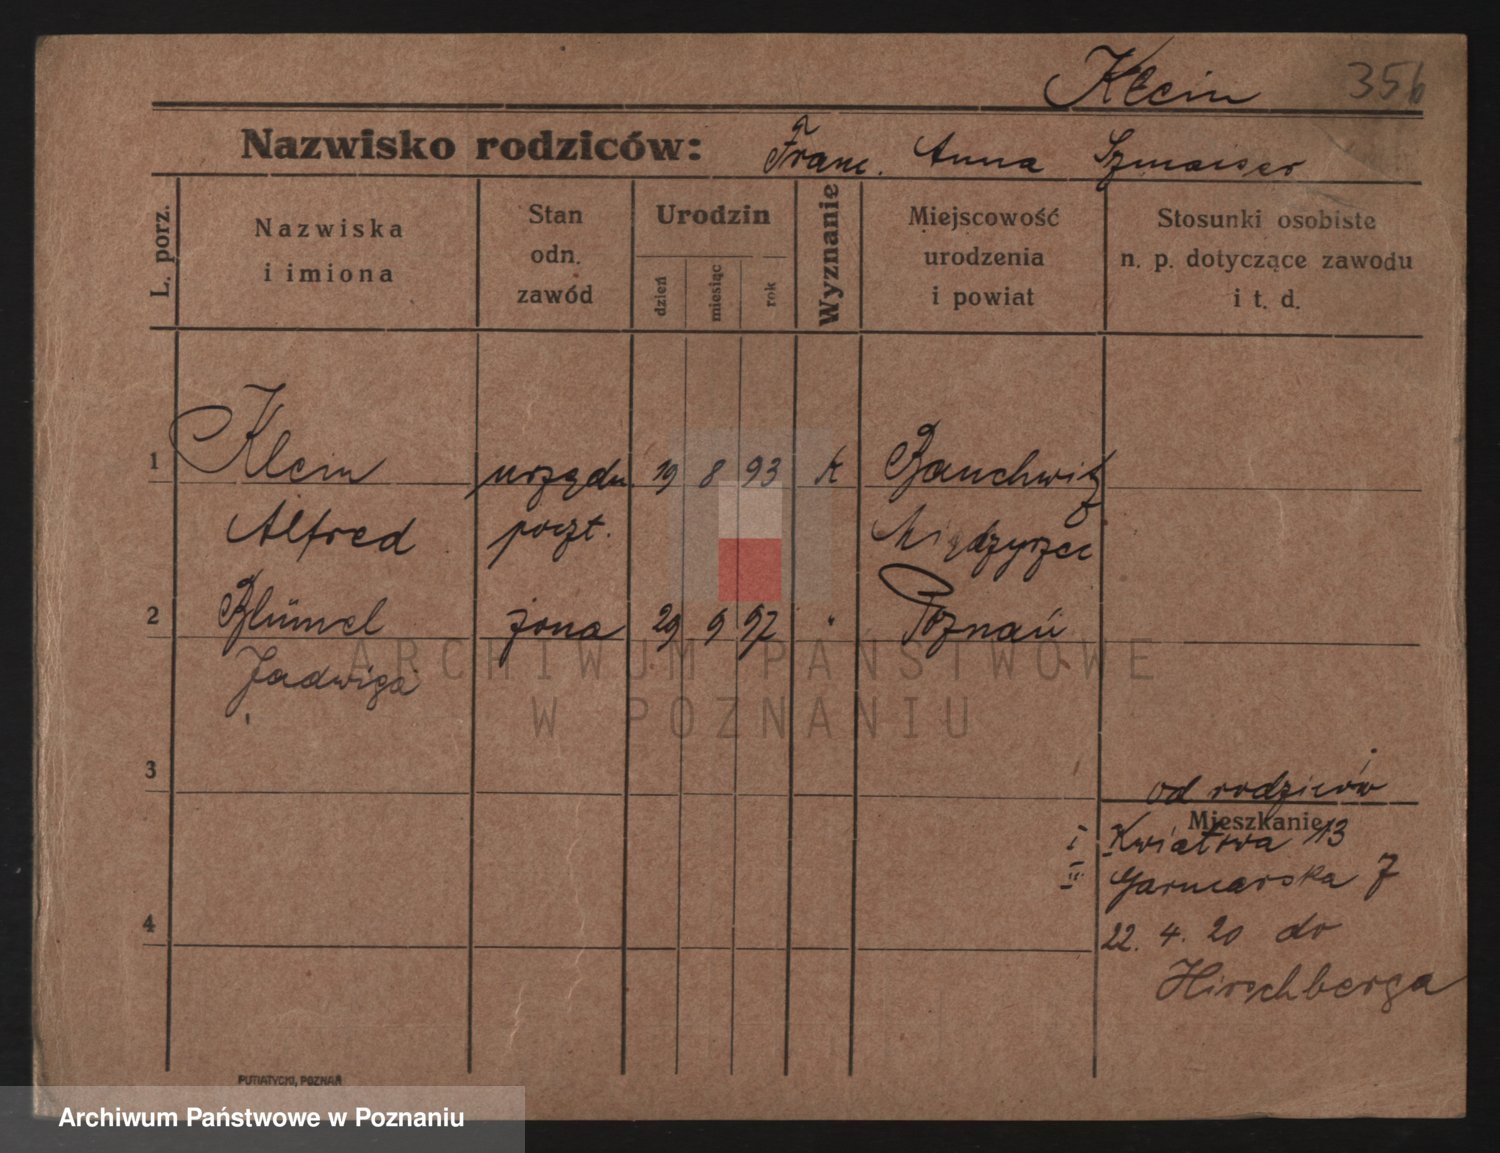 Klein 356
Nazwisko rodziców: Franc. Anna Szmaiser
L. porz.
Nazwiska
i imiona
Stan
odn.
zawód
Urodzin
dzień
miesiąc
rok
Wyznanie
Miejscowość
urodzenia
i powiat
Stosunki osobiste
n. p. dotyczące zawodu
i t. d.
1 Klein urzędn. 19 8 93 K Bauchwitz
Alfred poczt. Międzyrzec
2 Blümel żona 29 9 97 " Poznań
Jadwiga
ARCHIWUM PAŃSTWOWE
W POZNANIU
3
od rodziców
Mieszkanie
I Kwiatowa 13
Garncarska 7
4
22. 4. 20 do
Hirschberga
PUTIATYCKI, POZNAŃ
Archiwum Państwowe w Poznaniu